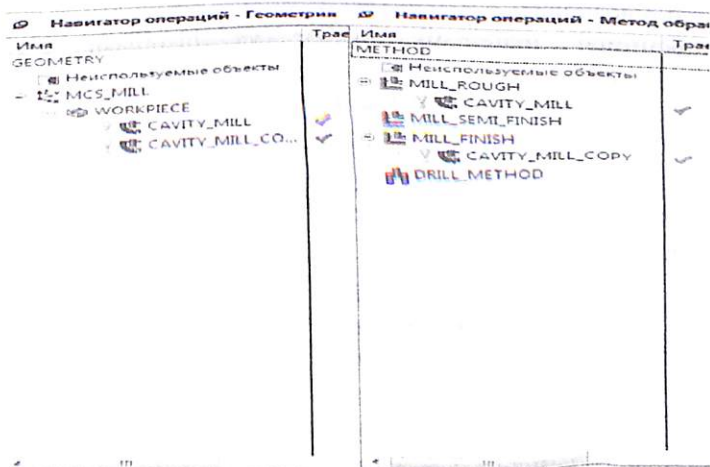 Навигатор операций - Геометрия
Имя Трае
GEOMETRY
Неиспользуемые объекты
MCS_MILL
WORKPIECE
CAVITY_MILL
CAVITY_MILL_CO...
Навигатор операций - Метод обра
Имя Трае
METHOD
Неиспользуемые объекты
MILL_ROUGH
CAVITY_MILL
MILL_SEMI_FINISH
MILL_FINISH
CAVITY_MILL_COPY
DRILL_METHOD